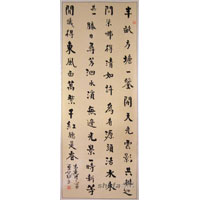 半畝方塘一鑒開天光雲影共徘徊
問渠那得清如許為有源頭活水來
勝日尋芳泗水濱無邊光景一時新等
閒識得東風面萬紫千紅總是春